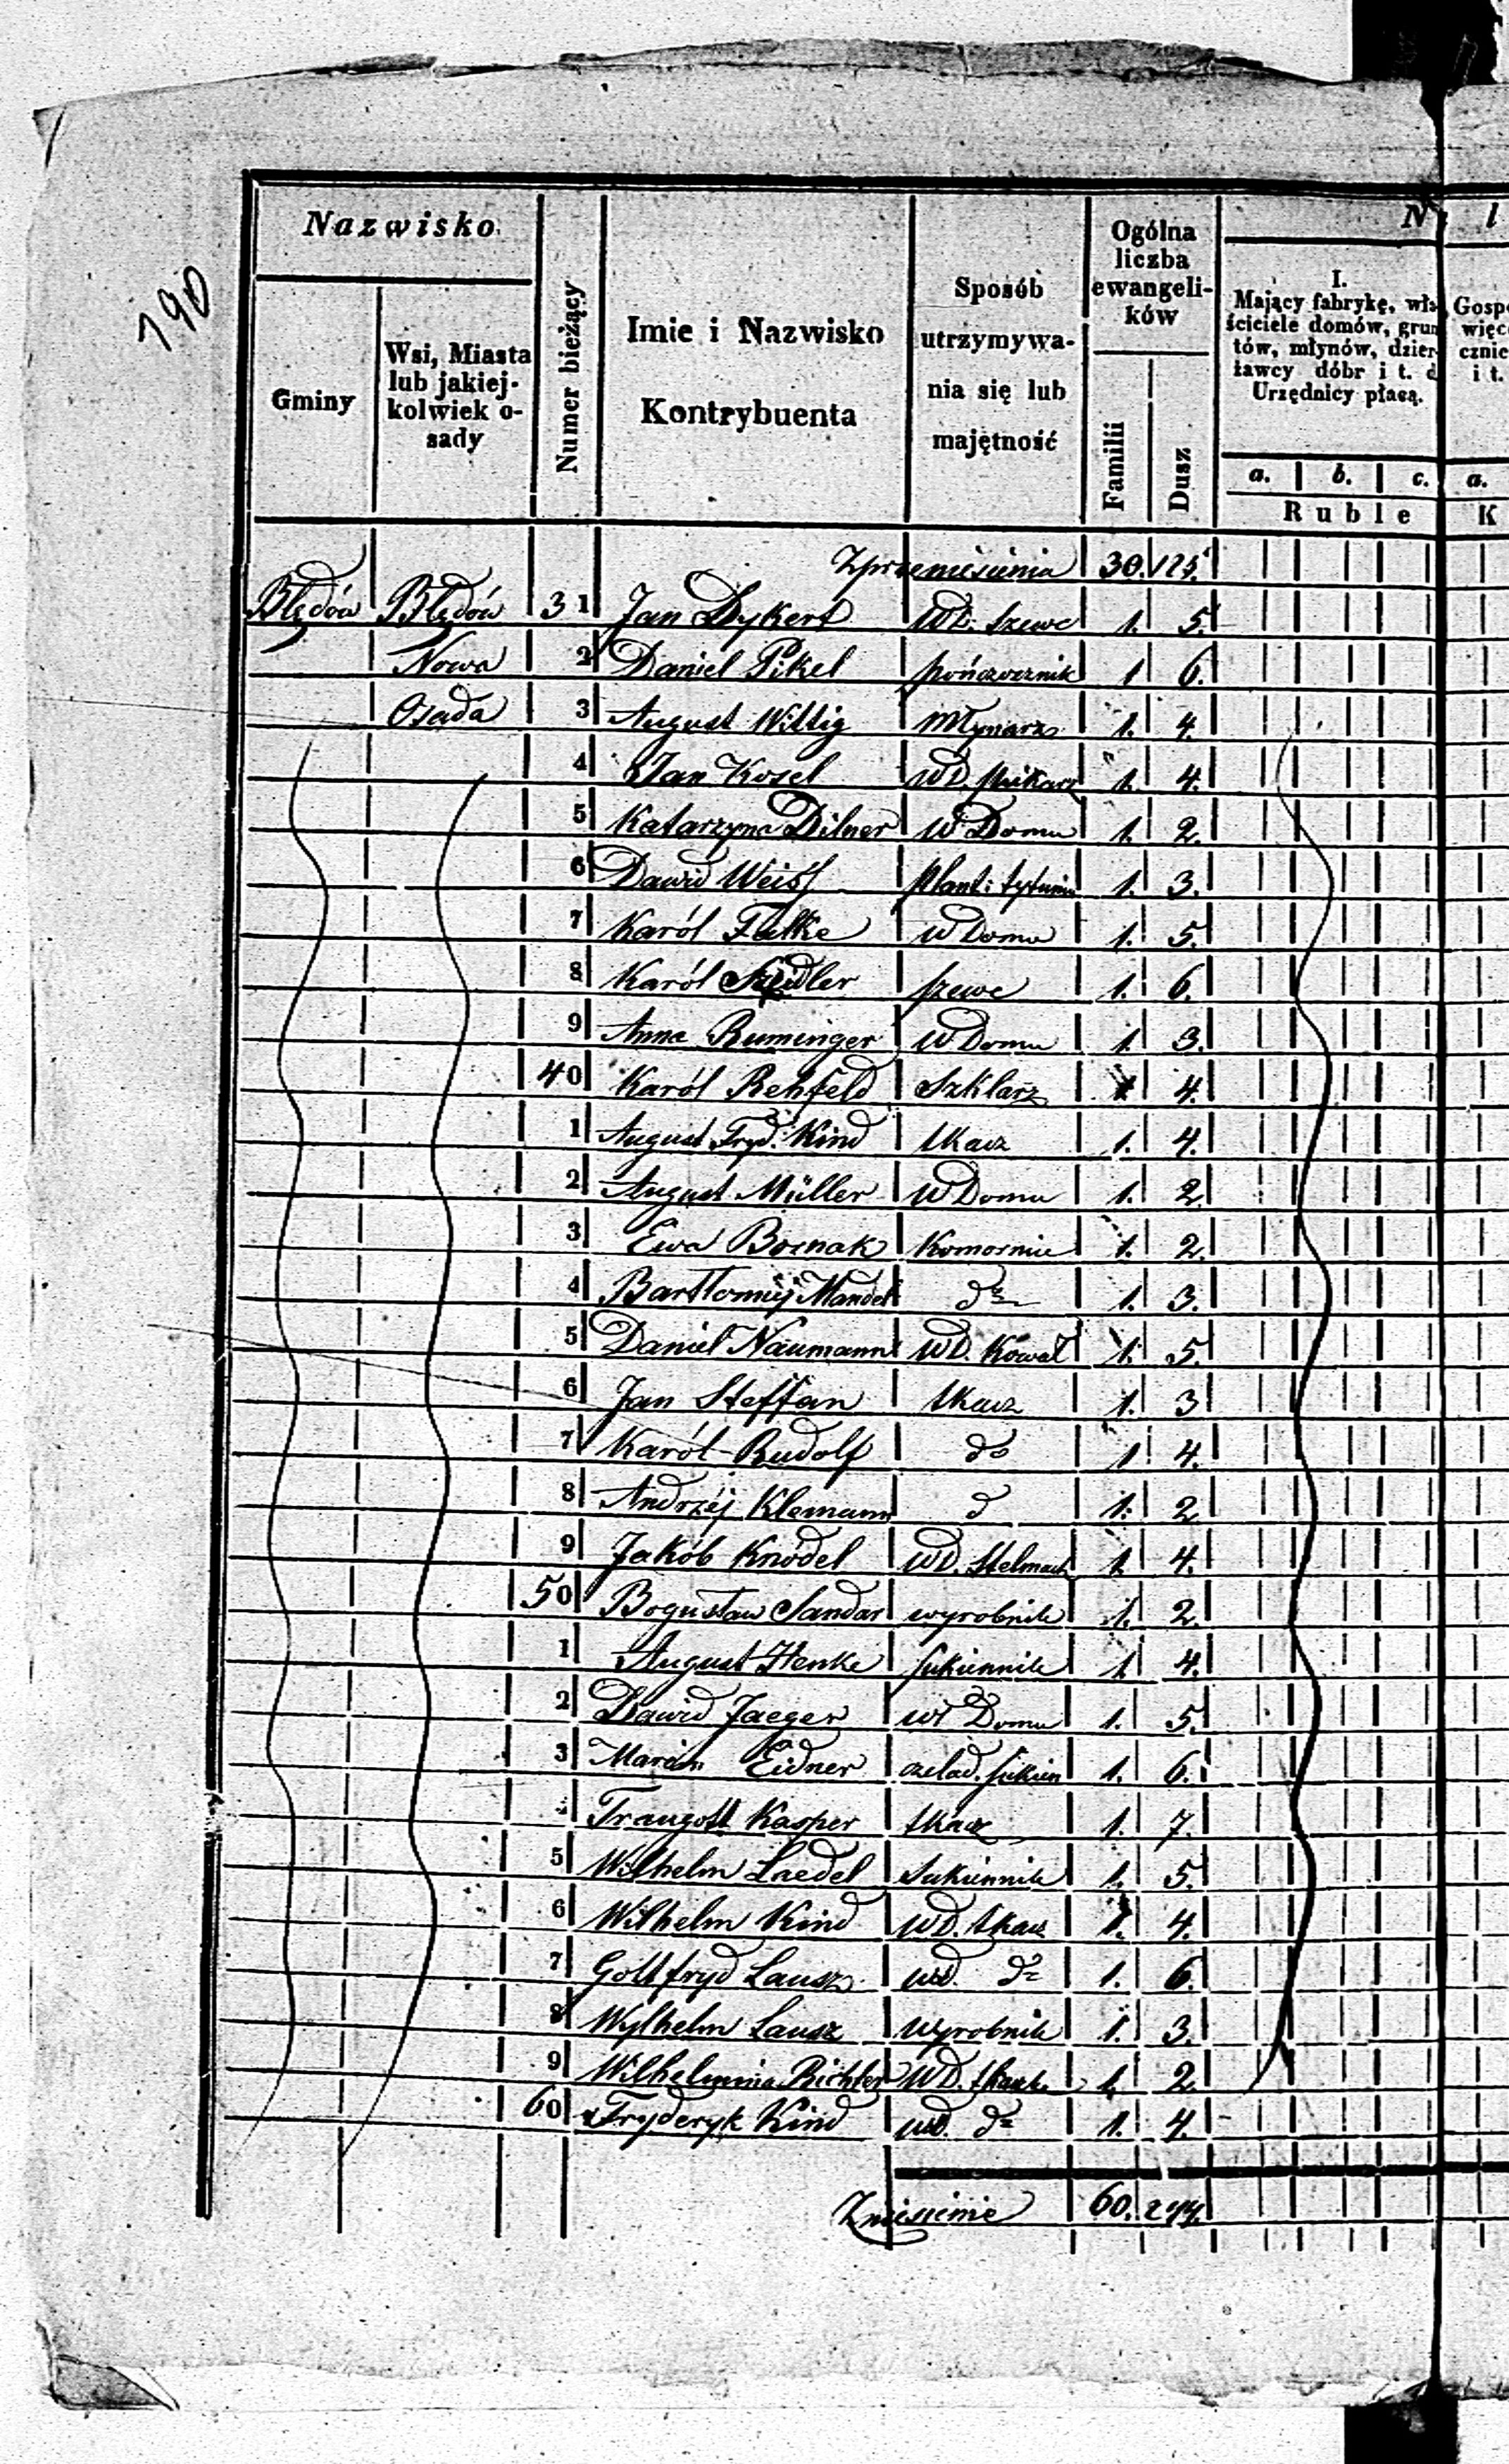 190
Nazwisko
Gminy
Wsi, Miasta
lub jakiej-
kolwiek o-
sady
Numer bieżący
Imie i Nazwisko
Kontrybuenta
Sposób
utrzymywa-
nia się lub
majętność
Ogólna
liczba
ewangeli-
ków
Familii
Dusz
N l
I.
Mający fabrykę, wła
ściciele domów, grun
tów, młynów, dzier
żawcy dóbr i t. d
Urzędnicy płacą.
a. b. c. a.
Ruble K
Gosp
więc
cznic
i t.
Zprzeniesienia 30. 125.
Błędów Błędów 31 Jan Dykert Wł. szewc 1. 5.
Nowa 2 Daniel Pikel pończocznik 1 6.
Osada 3 August Wittig Młynarz 1. 4.
4 Jan Kosel WD. piekarz 1. 4.
5 Katarzyna Dilner W Domu 1. 2.
6 Dawid Weiss plant: tytuniu 1. 3.
7 Karól Fulke W Domu 1. 5.
8 Karól Szedler szewc 1. 6.
9 Anna Ruminger W Domu 1. 3.
40 Karól Rehfeld Szklarz 1 4.
1 August Fryd. Kind tkacz 1. 4.
2 August Müller W Domu 1. 2
3 Ewa Bornak Komornic 1. 2.
4 Bartłomiej Mandel do 1. 3.
5 Daniel Naumann WD. Kowal 1. 5.
6 Jan Steffan tkacz 1. 3
7 Karól Rudolf do 1 4.
8 Andrzéj Klemann d 1. 2
9 Jakób Knodel WD. Stelmach 1. 4.
50 Bogusław Sandar wyrobnik 1. 2.
1 August Henke sukiennik 1 4.
2 Dawid Jaeger wł Domu 1. 5.
3 Marcin Eidner czelad. sukien 1. 6.
Traugott Kasper tkacz 1. 7.
5 Wilhelm Laedel Sukiennik 1. 5.
6 Wilhelm Kind WD. tkacz 1. 4.
7 Gottfryd Lausz wd. do 1. 6.
8 Wylhelm Lausz Wyrobnik 1. 3.
9 Wilhelmina Richter WD. tkacz. 1. 2
60 Fryderyk Kind wd. do 1. 4.
Zniesienie 60. 244.